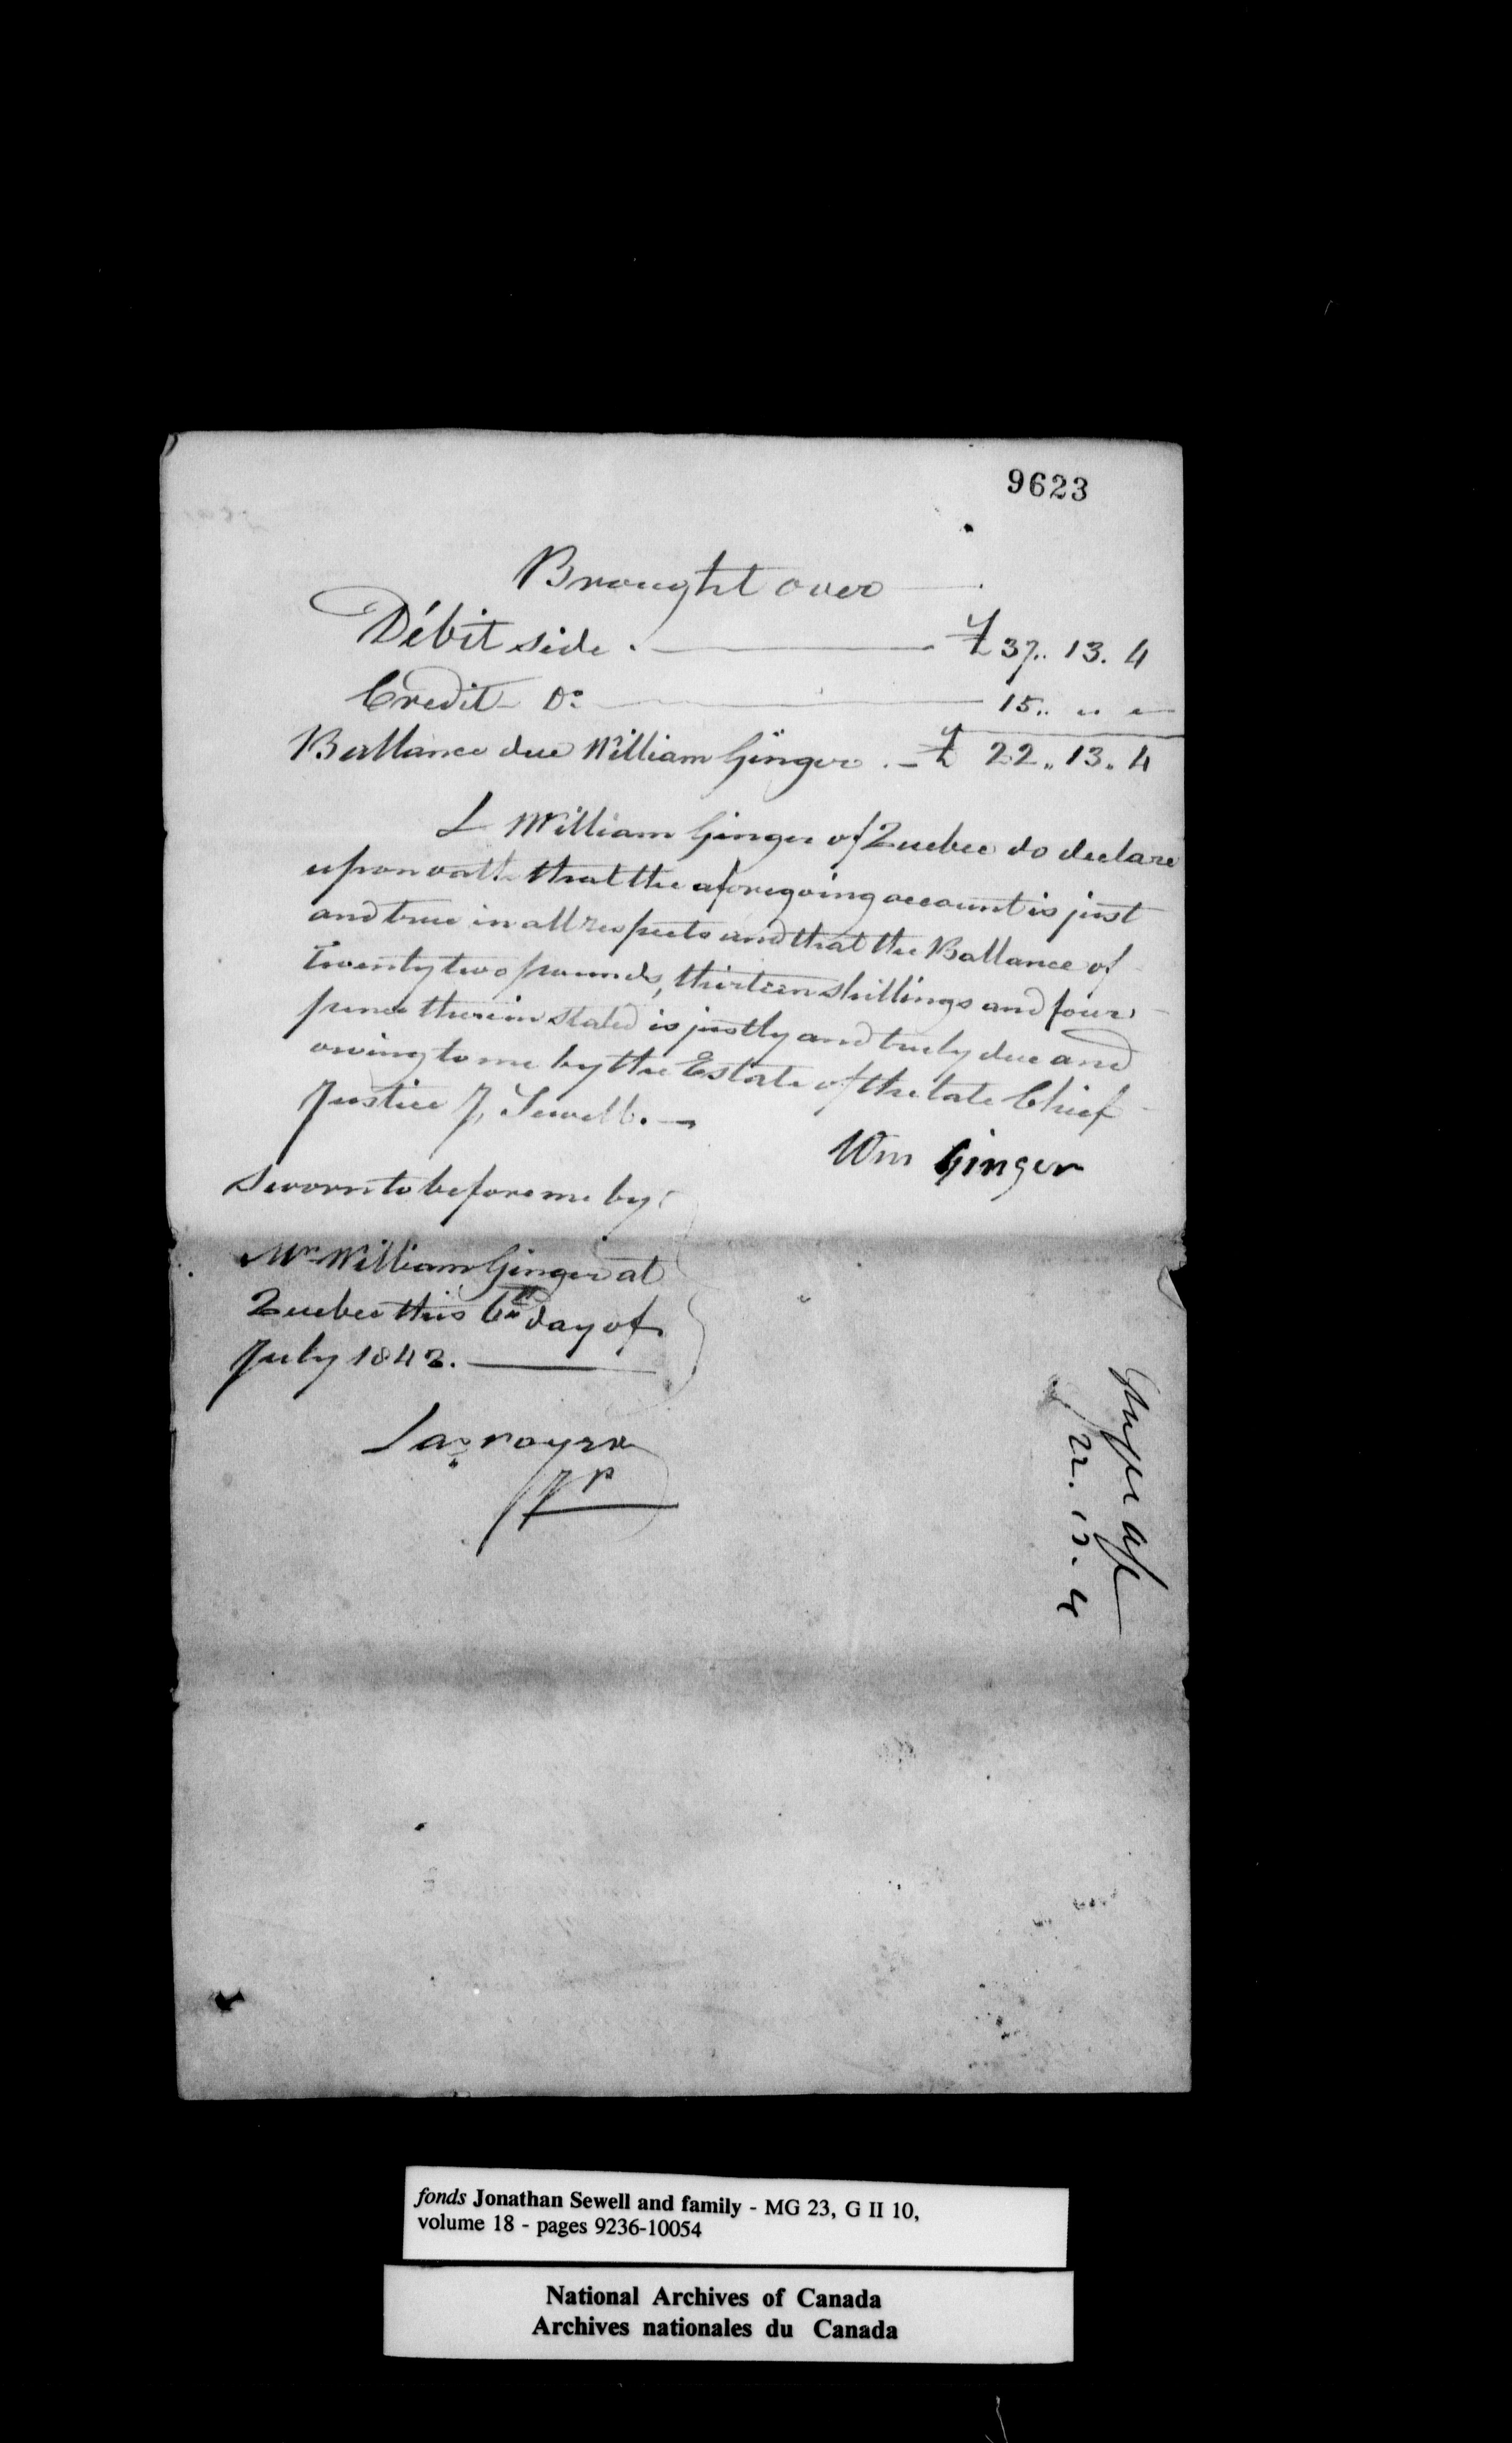 9623
Brought over
Débit side . £ 37.. 13. 4
Credit Do 15.. " "
Ballance due William Ginger . £ 22.. 13. 4
I William Ginger of Quebec do declare
upon oath that the aforegoing account is just
and true in all respects and that the Ballance of
Twenty two pounds, thirteen shillings and four
pence therein stated is justly and truly due and
owing to me by the Estate of the late Chief
Justice J, Sewell. —
Wm Ginger
Sworn to before me by
Mr William Ginger at
Quebec this 6th day of
July 1842.
JP
22. 13. 4
fonds Jonathan Sewell and family - MG 23, G II 10,
volume 18 - pages 9236-10054
National Archives of Canada
Archives nationales du Canada